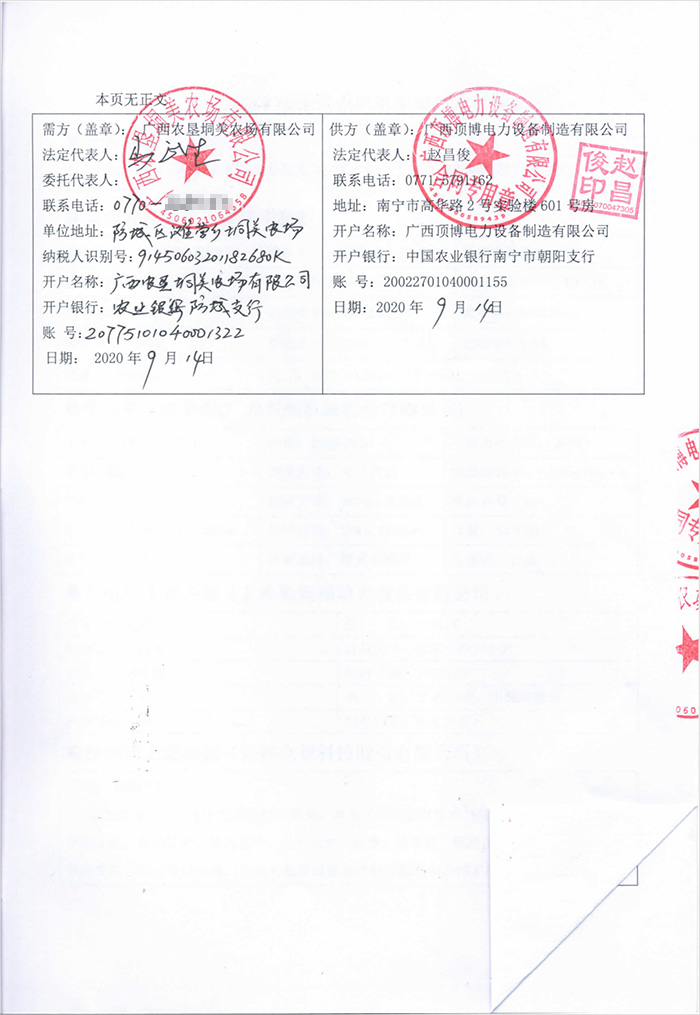 本页无正文
需方（盖章）：广西农垦垌美农场有限公司
法定代表人：
委托代表人：
联系电话：0770-
单位地址：防城区滩营乡垌美农场
纳税人识别号：91450603201182680K
开户名称：广西农垦垌美农场有限公司
开户银行：农业银行防城支行
账 号：20775101040001322
日期： 2020 年 9 月 14日
供方（盖章）：广西顶博电力设备制造有限公司
法定代表人：赵昌俊
联系电话：0771-5791162
地址：南宁市高华路 2 号实验楼 601 号房
开户名称：广西顶博电力设备制造有限公司
开户银行：中国农业银行南宁市朝阳支行
账 号：20022701040001155
日期：2020 年 9 月 14日
西农垦垌美农场有限公司
4506021064358
西顶博电力设备制造有限公司
合同专用章
赵昌
俊印
博电力
同专